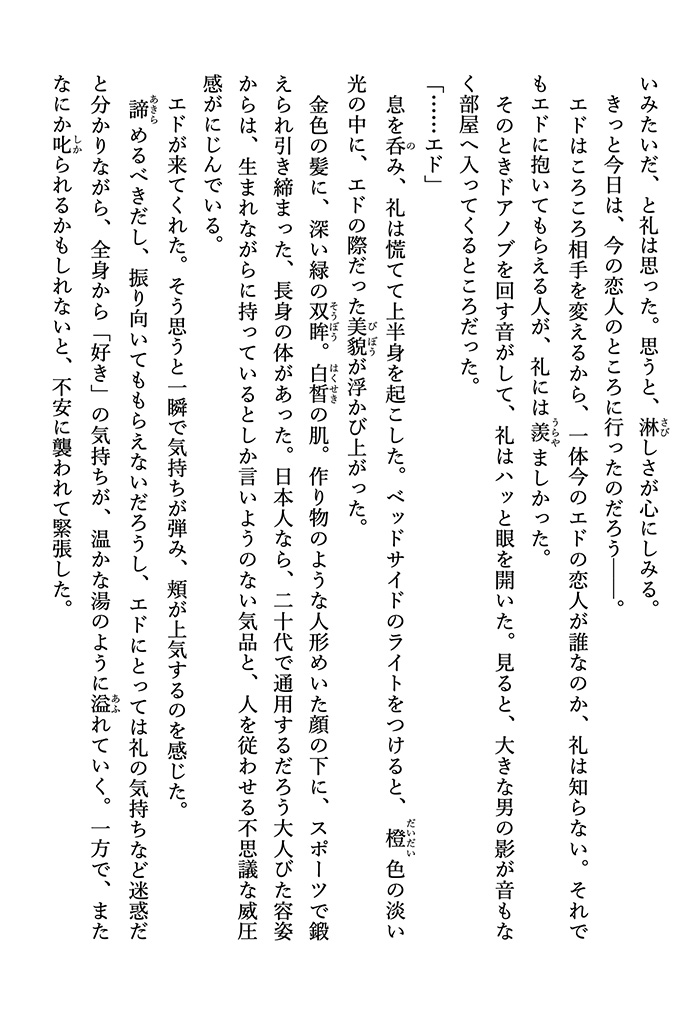 いみたいだ、と礼は思った。思うと、淋しさが心にしみる。
きっと今日は、今の恋人のところに行ったのだろう――。
エドはころころ相手を変えるから、一体今のエドの恋人が誰なのか、礼は知らない。それで
もエドに抱いてもらえる人が、礼には羨ましかった。
そのときドアノブを回す音がして、礼はハッと眼を開いた。見ると、大きな男の影が音もな
く部屋へ入ってくるところだった。
「……エド」
息を呑み、礼は慌てて上半身を起こした。ベッドサイドのライトをつけると、橙色の淡い
光の中に、エドの際だった美貌が浮かび上がった。
金色の髪に、深い緑の双眸。白皙の肌。作り物のような人形めいた顔の下に、スポーツで鍛
えられ引き締まった、長身の体があった。日本人なら、二十代で通用するだろう大人びた容姿
からは、生まれながらに持っているとしか言いようのない気品と、人を従わせる不思議な威圧
感がにじんでいる。
エドが来てくれた。そう思うと一瞬で気持ちが弾み、頬が上気するのを感じた。
諦めるべきだし、振り向いてももらえないだろうし、エドにとっては礼の気持ちなど迷惑だ
と分かりながら、全身から「好き」の気持ちが、温かな湯のように溢れていく。一方で、また
なにか叱られるかもしれないと、不安に襲われて緊張した。